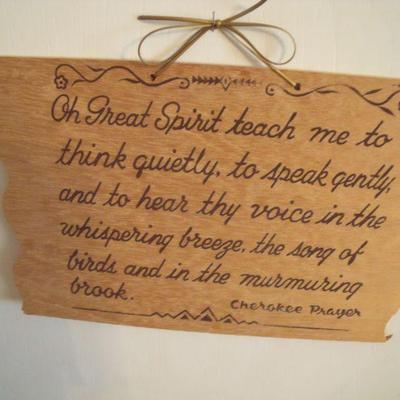 Oh Great Spirit teach me to
think quietly, to speak gently,
and to hear thy voice in the
whispering breeze, the song of
birds and in the murmuring
brook.
Cherokee Prayer